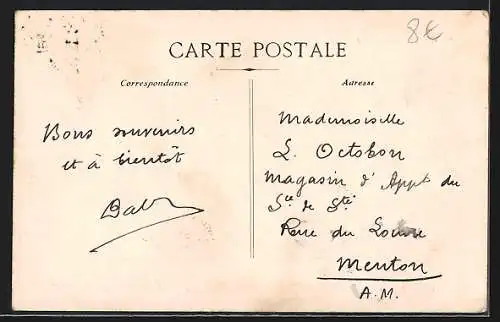 8€
CARTE POSTALE
Correspondance
Adresse
Bons souvenirs
et à bientôt
Mademoiselle
L. Octobon
Magasin d'Appt du
Sce de Sté
Rue du Louvre
Menton
A.M.